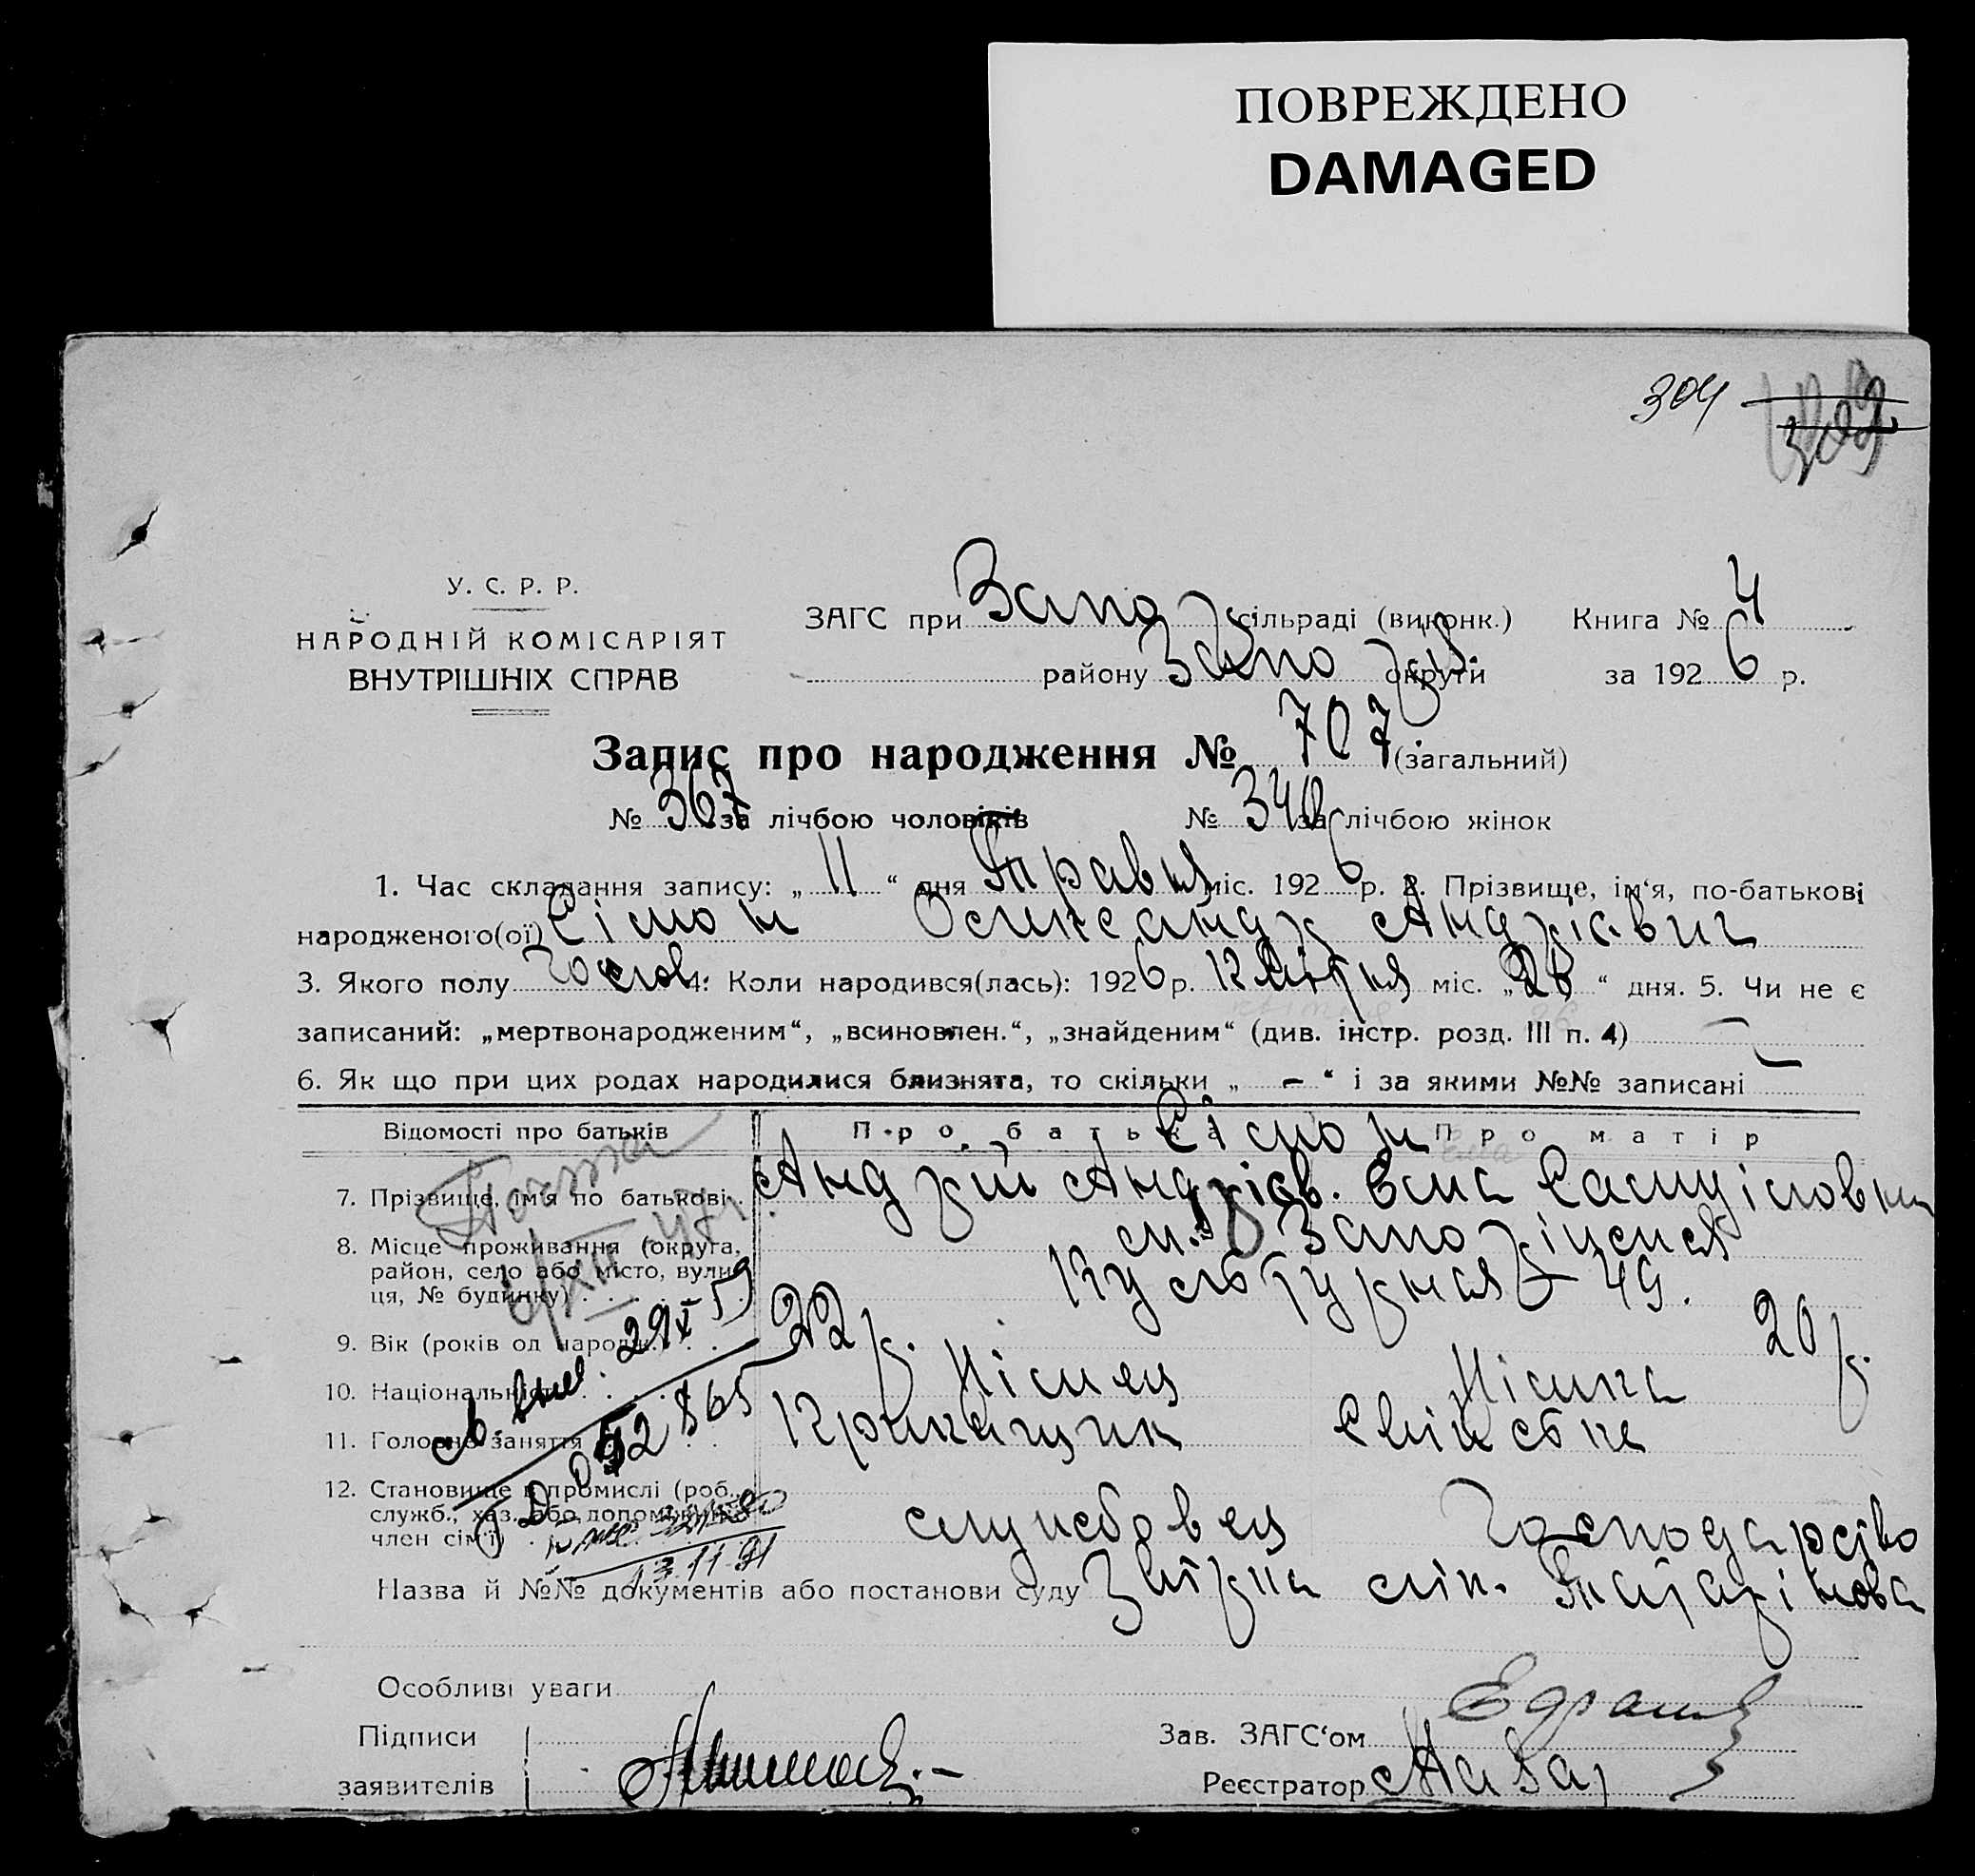 ПОВРЕЖДЕНО
DAMAGED
304 302
У. С. Р. Р.
НАРОДНІЙ КОМІСАРІЯТ
ВНУТРІШНІХ СПРАВ
ЗАГС при Запор сільраді (виконк.) Книга № 4
району Запоріз. округи за 1926 р.
Запис про народження № 707 (загальний)
№ 367 за лічбою чоловіків № 340 за лічбою жінок
1. Час складання запису: „ 11 “ дня Травня міс. 1926 р. 2. Прізвище, ім‘я, по-батькові
народженого(ої) Сімон Олександр Андрієвич
3. Якого полу чолов. 4. Коли народився(лась): 1926 р. Квітня міс. „ 26 “ дня. 5. Чи не є
записаний: „мертвонародженим“, „всиновлен.“, „знайденим“ (див. інстр. розд. III п. 4) —
6. Як що при цих родах народилися близнята, то скільки „ – “ і за якими №№ записані —
Відомості про батьків Про батька Сімон Про матір
7. Прізвище, ім‘я по батькові Андрій Андрієв. Ема Самуіловна
8. Місце проживання (округа, район, село або місто, вулиця, № будинку) м. Запоріжжя
Культурная 49.
9. Вік (років од народж.) 22 р. 20 р.
10. Національність Німец Німка
11. Головне заняття Прикащик Свійська
12. Становище в промислі (роб., служб., хаз. або допоміжний член сім‘ї) службовец Господарство
29 X 59
052865
13.11.91
Назва й №№ документів або постанови суду Затрка лік. Татарінова
Особливі уваги
Підписи
заявителів
Зав. ЗАГС‘ом
Реєстратор